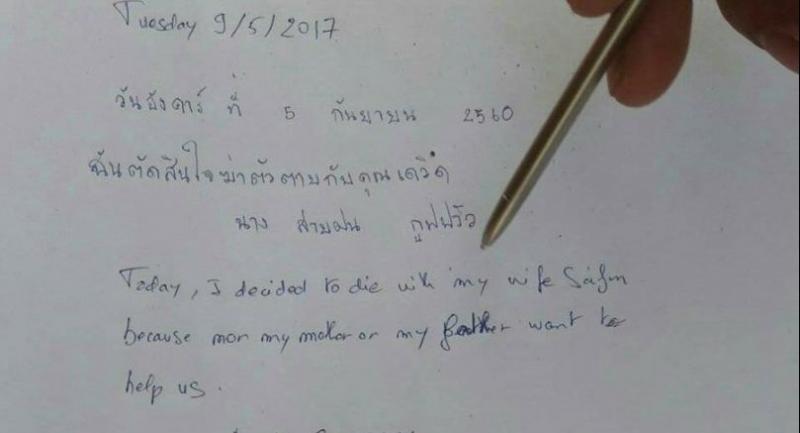 Tuesday 9/5/2017
วันอังคาร์ ที่ 5 กันยายน 2560
ฉันตัดสินใจฆ่าตัวตายกับคุณเดวิด
นาง สายฝน
Today, I decided to die with my wife Saifon
because mor my mother or my father want to
help us.